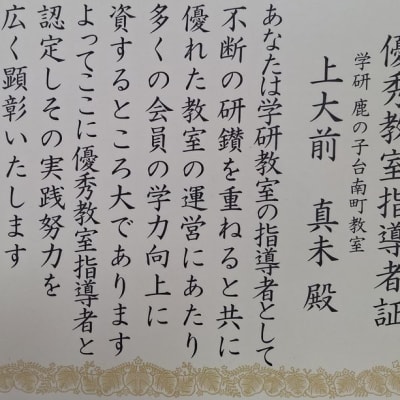 優秀教室指導者証
学研 鹿の子台南町教室
上大前 真未 殿
あなたは学研教室の指導者として
不断の研鑽を重ねると共に
優れた教室の運営にあたり
多くの会員の学力向上に
資するところ大であります
よってここに優秀教室指導者と
認定しその実践努力を
広く顕彰いたします